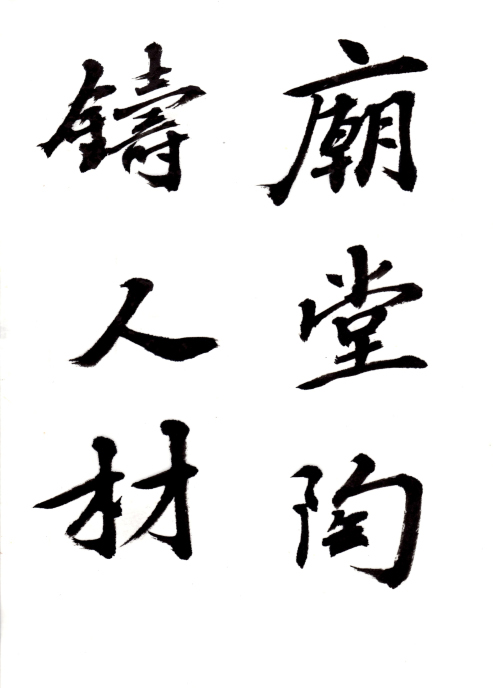 廟堂陶
鑄人材